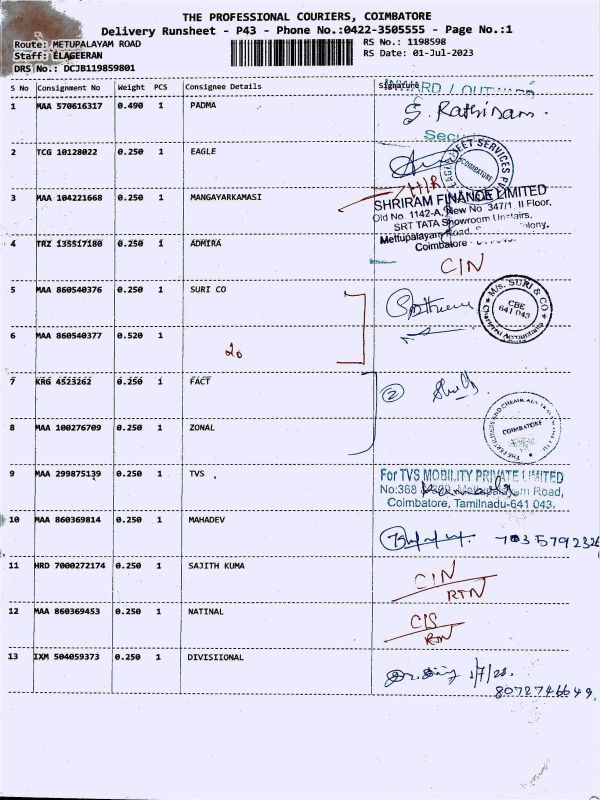 THE PROFESSIONAL COURIERS, COIMBATORE
Delivery Runsheet - P43 - Phone No.:0422-3505555 - Page No.:1
Route: METUPALAYAM ROAD RS No.: 1198598
Staff: ELAGEERAN RS Date: 01-Jul-2023
DRS No.: DCJB119859801
S No Consignment No Weight PCS Consignee Details Signature
1 MAA 570616317 0.490 1 PADMA S. Rathinam.
2 TCG 10128022 0.250 1 EAGLE
H/R
3 MAA 104221668 0.250 1 MANGAYARKAMASI
SHRIRAM FINANCE LIMITED
Old No. 1142-A, New No 347/1, II Floor,
SRT TATA Showroom Upstairs,
Mettupalayam Road,
Coimbatore
4 TRZ 135517180 0.250 1 ADMIRA
CIN
5 MAA 860540376 0.250 1 SURI CO
M/s. SURI & CO
CBE
641 043
Chartered Accountants
6 MAA 860540377 0.520 1
20
7 KRG 4523262 0.250 1 FACT 2
8 MAA 100276709 0.250 1 ZONAL
COIMBATORE
9 MAA 299875139 0.250 1 TVS
For TVS MOBILITY PRIVATE LIMITED
No:368 Road,
Coimbatore, Tamilnadu-641 043.
10 MAA 860369814 0.250 1 MAHADEV
11 HRD 7000272174 0.250 1 SAJITH KUMA
CIN
RTN
12 MAA 860369453 0.250 1 NATINAL
CIS
RTN
13 IXM 504059373 0.250 1 DIVISIIONAL
1/7/23.
8072746649.